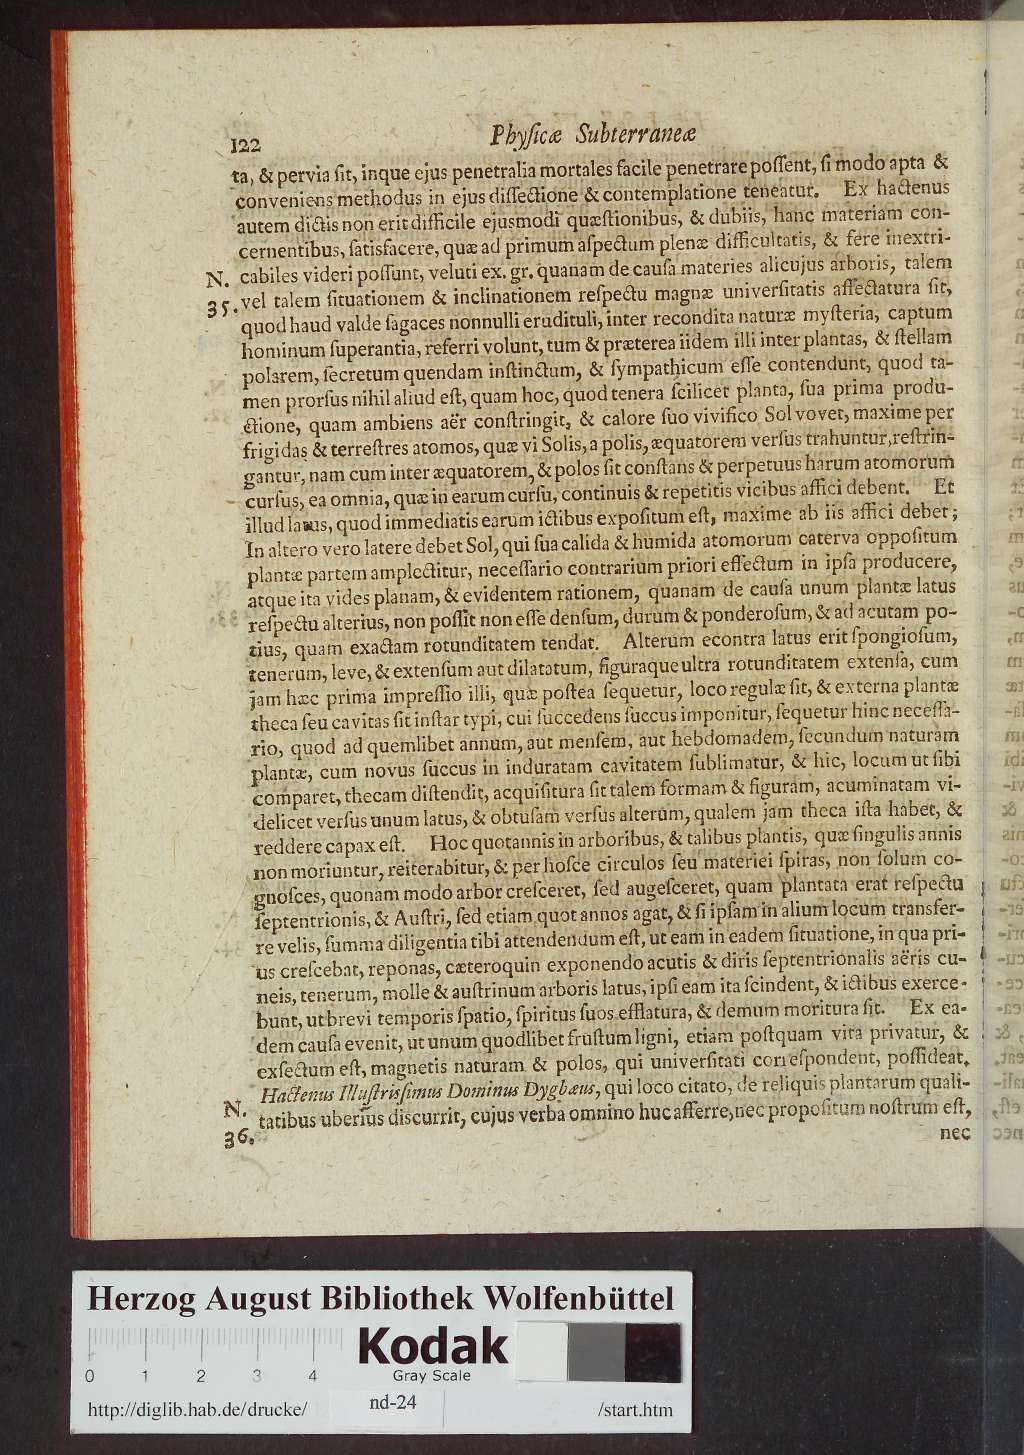 122 Phyſicæ Subterraneæ
ta, & pervia ſit, inque ejus penetralia mortales facile penetrare poſſent, ſi modo apta &
conveniens methodus in ejus diſſectione & contemplatione teneatur. Ex hactenus
autem dictis non erit difficile ejusmodi quæſtionibus, & dubiis, hanc materiam con-
cernentibus, ſatisfacere, quæ ad primum aſpectum plenæ difficultatis, & fere inextri-
N. cabiles videri poſſunt, veluti ex. gr. quanam de cauſa materies alicujus arboris, talem
35. vel talem ſituationem & inclinationem reſpectu magnæ univerſitatis affectatura ſit,
quod haud valde ſagaces nonnulli erudituli, inter recondita naturæ myſteria, captum
hominum ſuperantia, referri volunt, tum & præterea iidem illi inter plantas, & ſtellam
polarem, ſecretum quendam inſtinctum, & ſympathicum eſſe contendunt, quod ta-
men prorſus nihil aliud eſt, quam hoc, quod tenera ſcilicet planta, ſua prima produ-
ctione, quam ambiens aër conſtringit, & calore ſuo vivifico Sol vovet, maxime per
frigidas & terreſtres atomos, quæ vi Solis, a polis, æquatorem verſus trahuntur, reſtrin-
gantur, nam cum inter æquatorem, & polos ſit conſtans & perpetuus harum atomorum
curſus, ea omnia, quæ in earum curſu, continuis & repetitis vicibus affici debent. Et
illud latus, quod immediatis earum ictibus expoſitum eſt, maxime ab iis affici debet;
In altero vero latere debet Sol, qui ſua calida & humida atomorum caterva oppoſitum
plantæ partem amplectitur, neceſſario contrarium priori effectum in ipſa producere,
atque ita vides planam, & evidentem rationem, quanam de cauſa unum plantæ latus
reſpectu alterius, non poſſit non eſſe denſum, durum & ponderoſum, & ad acutam po-
tius, quam exactam rotunditatem tendat. Alterum econtra latus erit ſpongioſum,
tenerum, leve, & extenſum aut dilatatum, figuraque ultra rotunditatem extenſa, cum
jam hæc prima impreſſio illi, quæ poſtea ſequetur, loco regulæ ſit, & externa plantæ
theca ſeu cavitas ſit inſtar typi, cui ſuccedens ſuccus imponitur, ſequetur hinc neceſſa-
rio, quod ad quemlibet annum, aut menſem, aut hebdomadem, ſecundum naturam
plantæ, cum novus ſuccus in induratam cavitatem ſublimatur, & hic, locum ut ſibi
comparet, thecam diſtendit, acquiſitura ſit talem formam & figuram, acuminatam vi-
delicet verſus unum latus, & obtuſam verſus alterum, qualem jam theca iſta habet, &
reddere capax eſt. Hoc quotannis in arboribus, & talibus plantis, quæ ſingulis annis
non moriuntur, reiterabitur, & per hoſce circulos ſeu materiei ſpiras, non ſolum co-
gnoſces, quonam modo arbor creſceret, ſed augeſceret, quam plantata erat reſpectu
ſeptentrionis, & Auſtri, ſed etiam quot annos agat, & ſi ipſam in alium locum transfer-
re velis, ſumma diligentia tibi attendendum eſt, ut eam in eadem ſituatione, in qua pri-
us creſcebat, reponas, cæteroquin exponendo acutis & diris ſeptentrionalis aëris cu-
neis, tenerum, molle & auſtrinum arboris latus, ipſi eam ita ſcindent, & ictibus exerce-
bunt, ut brevi temporis ſpatio, ſpiritus ſuos efflatura, & demum moritura ſit. Ex ea-
dem cauſa evenit, ut unum quodlibet fruſtum ligni, etiam poſtquam vita privatur, &
exſectum eſt, magnetis naturam & polos, qui univerſitati correſpondent, poſſideat.
Hactenus Illuſtriſſimus Dominus Dygbæus, qui loco citato, de reliquis plantarum quali-
N. tatibus uberius discurrit, cujus verba omnino huc afferre, nec propoſitum noſtrum eſt,
36.
nec
Herzog August Bibliothek Wolfenbüttel
Kodak
0 1 2 3 4 Gray Scale
http://diglib.hab.de/drucke/ nd-24 /start.htm